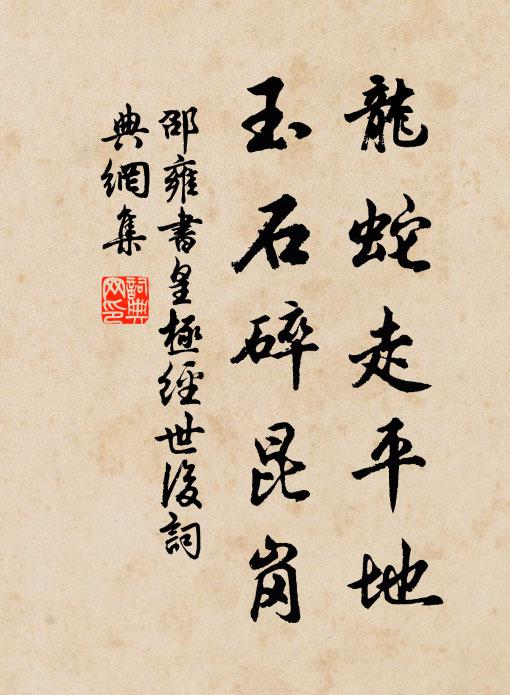 龍蛇走平地
玉石碎昆崗
邵雍書皇極經世後詞
典網集
詞典
网印